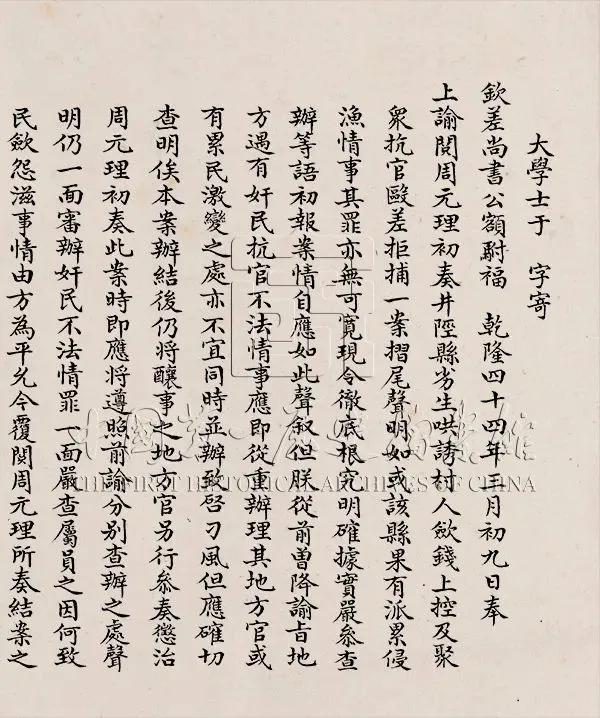 大學士于　字寄
欽差尚書公額駙福　乾隆四十四年三月初九日奉
上諭閱周元理初奏井陘縣劣生哄誘村人歛錢上控及聚
衆抗官毆差拒捕一案摺尾聲明如或該縣果有派累侵
漁情事其罪亦無可寛現令徹底根究明確據實嚴叅查
辦等語初報案情自應如此聲叙但朕從前曽降諭㫖地
方遇有奸民抗官不法情事應即從重辦理其地方官或
有累民激變之處亦不宜同時並辦致啓刁風但應確切
查明俟本案辦結後仍將釀事之地方官另行叅奏懲治
周元理初奏此案時即應將遵照前諭分别查辦之處聲
明仍一面審辦奸民不法情罪一面嚴查屬員之因何致
民歛怨滋事情由方為平允今覆閱周元理所奏結案之
中國第一歷史檔案館
THE FIRST HISTORICAL ARCHIVES OF CHINA